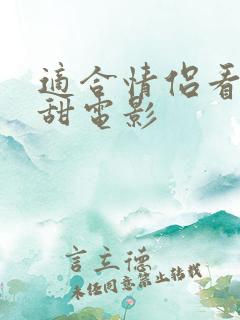 適合情侶看
甜電影
言立德
未任同意禁止转载